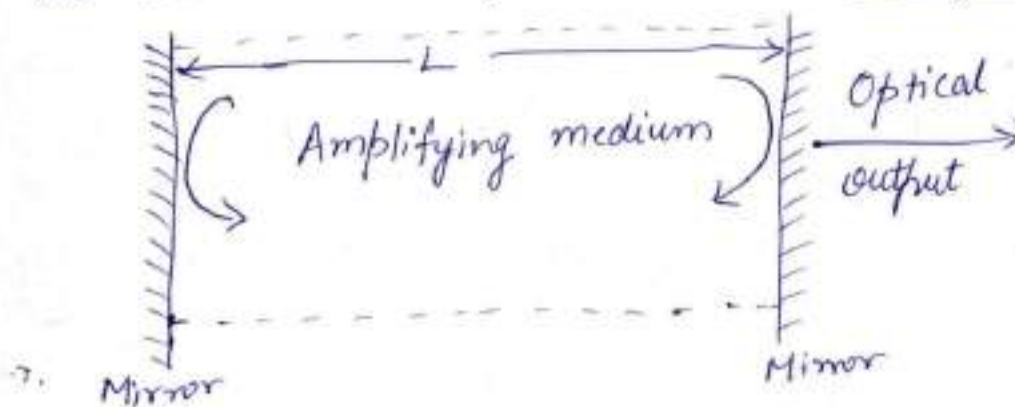 L
Amplifying medium
Optical
output
Mirror
Mirror